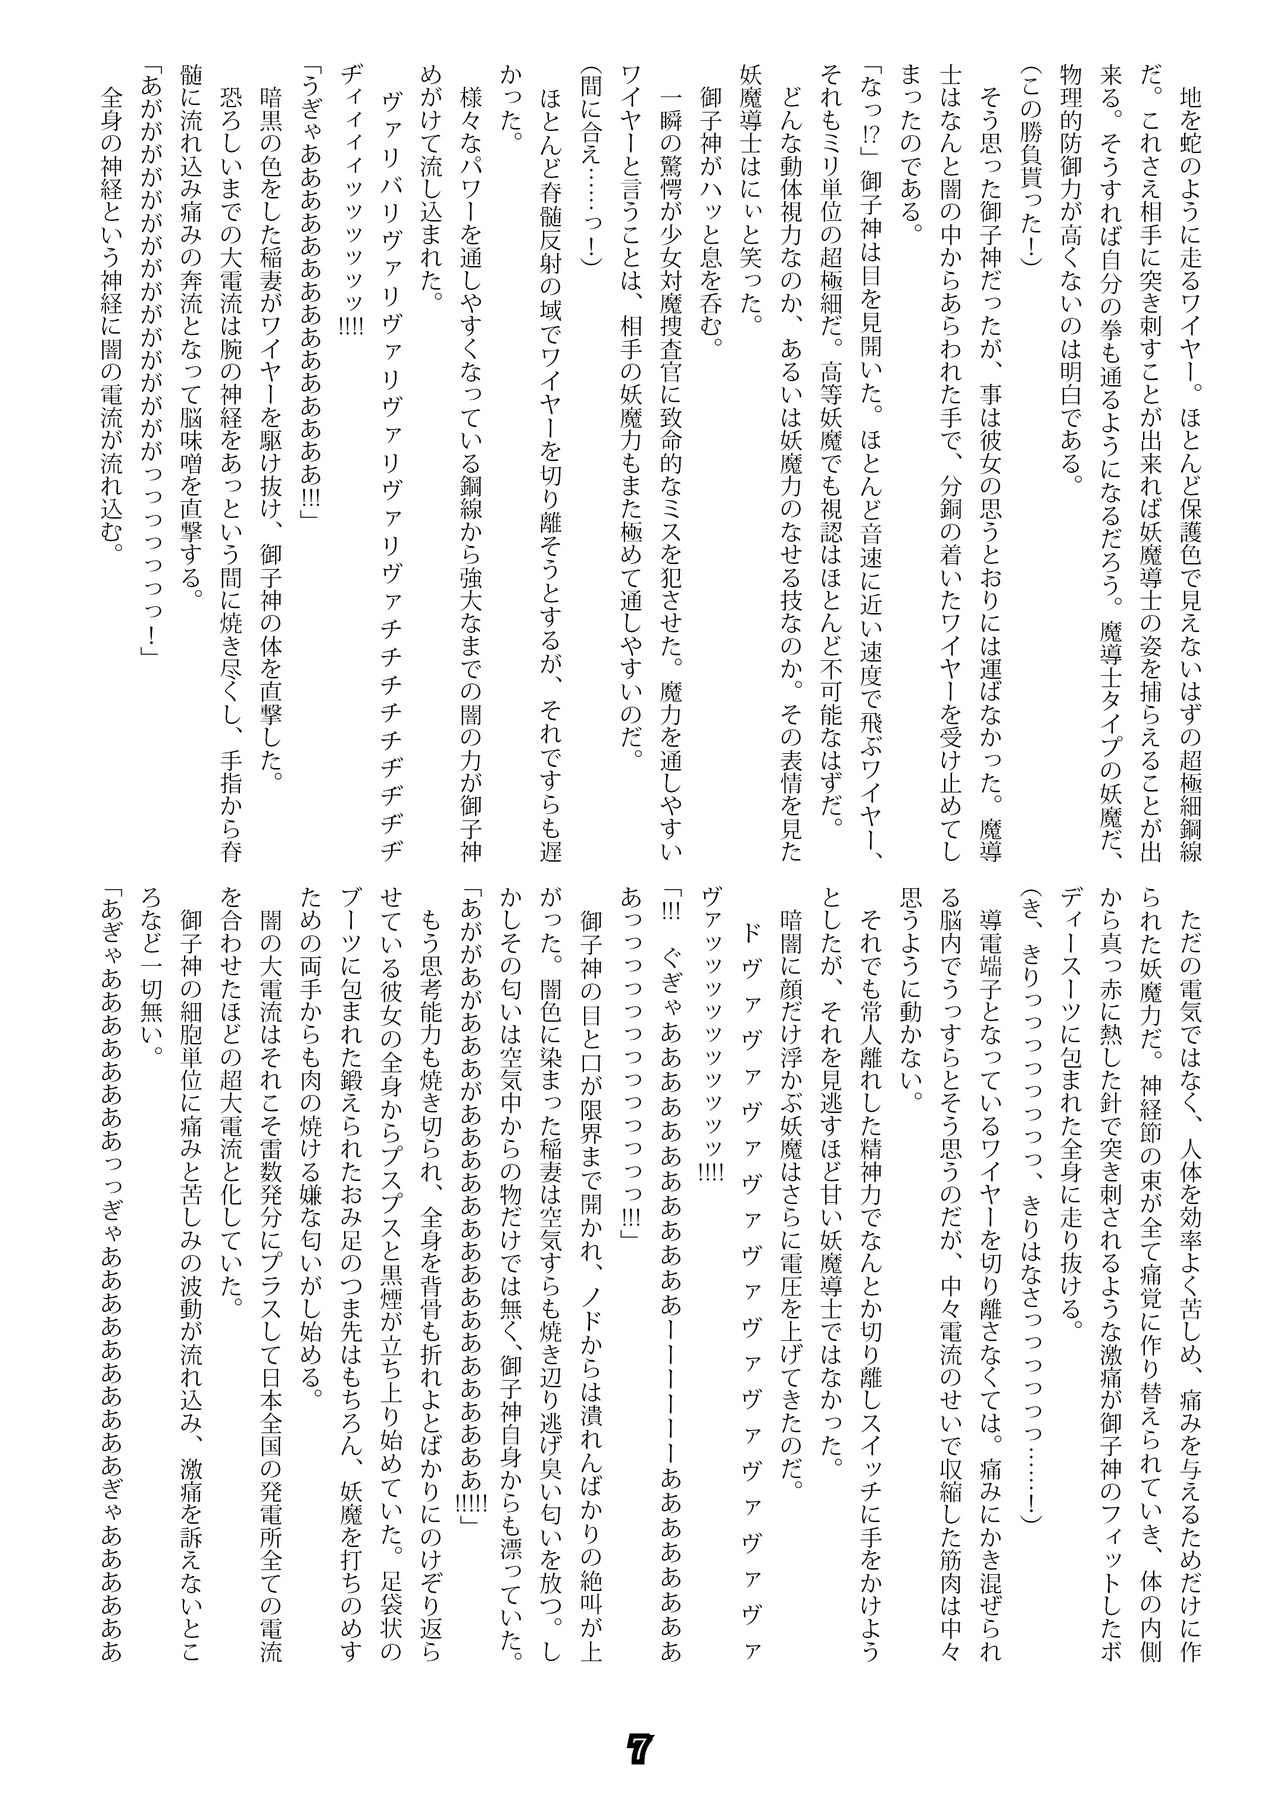 地を蛇のように走るワイヤー。ほとんど保護色で見えないはずの超極細鋼線
だ。これさえ相手に突き刺すことが出来れば妖魔導士の姿を捕らえることが出
来る。そうすれば自分の拳も通るようになるだろう。魔導士タイプの妖魔だ、
物理的防御力が高くないのは明白である。
（この勝負貰った！）
　そう思った御子神だったが、事は彼女の思うとおりには運ばなかった。魔導
士はなんと闇の中からあらわれた手で、分銅の着いたワイヤーを受け止めてし
まったのである。
「なっ!?」御子神は目を見開いた。ほとんど音速に近い速度で飛ぶワイヤー、
それもミリ単位の超極細だ。高等妖魔でも視認はほとんど不可能なはずだ。
　どんな動体視力なのか、あるいは妖魔力のなせる技なのか。その表情を見た
妖魔導士はにぃと笑った。
　御子神がハッと息を呑む。
　一瞬の驚愕が少女対魔捜査官に致命的なミスを犯させた。魔力を通しやすい
ワイヤーと言うことは、相手の妖魔力もまた極めて通しやすいのだ。
（間に合え……っ！）
　ほとんど脊髄反射の域でワイヤーを切り離そうとするが、それですらも遅
かった。
　様々なパワーを通しやすくなっている鋼線から強大なまでの闇の力が御子神
めがけて流し込まれた。
　ヴァリバリヴァリヴァリヴァリヴァリヴァチチチチチヂヂヂヂ
ヂィィィィッッッッッ!!!!
「うぎゃああああああああああああああああ!!!」
　暗黒の色をした稲妻がワイヤーを駆け抜け、御子神の体を直撃した。
　恐ろしいまでの大電流は腕の神経をあっという間に焼き尽くし、手指から脊
髄に流れ込み痛みの奔流となって脳味噌を直撃する。
「あががががががががががががががががっっっっっっっ！」
　全身の神経という神経に闇の電流が流れ込む。
　ただの電気ではなく、人体を効率よく苦しめ、痛みを与えるためだけに作
られた妖魔力だ。神経節の束が全て痛覚に作り替えられていき、体の内側
から真っ赤に熱した針で突き刺されるような激痛が御子神のフィットしたボ
ディースーツに包まれた全身に走り抜ける。
（き、きりっっっっっっっっ、きりはなさっっっっっっ……！）
　導電端子となっているワイヤーを切り離さなくては。痛みにかき混ぜられ
る脳内でうっすらとそう思うのだが、中々電流のせいで収縮した筋肉は中々
思うように動かない。
　それでも常人離れした精神力でなんとか切り離しスイッチに手をかけよう
としたが、それを見逃すほど甘い妖魔導士ではなかった。
　暗闇に顔だけ浮かぶ妖魔はさらに電圧を上げてきたのだ。
　ドヴァヴァヴァヴァヴァヴァヴァヴァヴァヴァ
ヴァッッッッッッッッッ!!!!
「!!!　ぐぎゃああああああああああああーーーーーーああああああああ
あっっっっっっっっっっっっ!!!」
　御子神の目と口が限界まで開かれ、ノドからは潰れんばかりの絶叫が上
がった。闇色に染まった稲妻は空気すらも焼き辺り逃げ臭い匂いを放つ。し
かしその匂いは空気中からの物だけでは無く、御子神自身からも漂っていた。
「あががあがあああがああああああああああああああああああ!!!!!」
　もう思考能力も焼き切られ、全身を背骨も折れよとばかりにのけぞり返ら
せている彼女の全身からプスプスと黒煙が立ち上り始めていた。足袋状の
ブーツに包まれた鍛えられたおみ足のつま先はもちろん、妖魔を打ちのめす
ための両手からも肉の焼ける嫌な匂いがし始める。
　闇の大電流はそれこそ雷数発分にプラスして日本全国の発電所全ての電流
を合わせたほどの超大電流と化していた。
　御子神の細胞単位に痛みと苦しみの波動が流れ込み、激痛を訴えないとこ
ろなど一切無い。
「あぎゃああああああああああっっぎゃああああああああああああぎゃああああああ
7